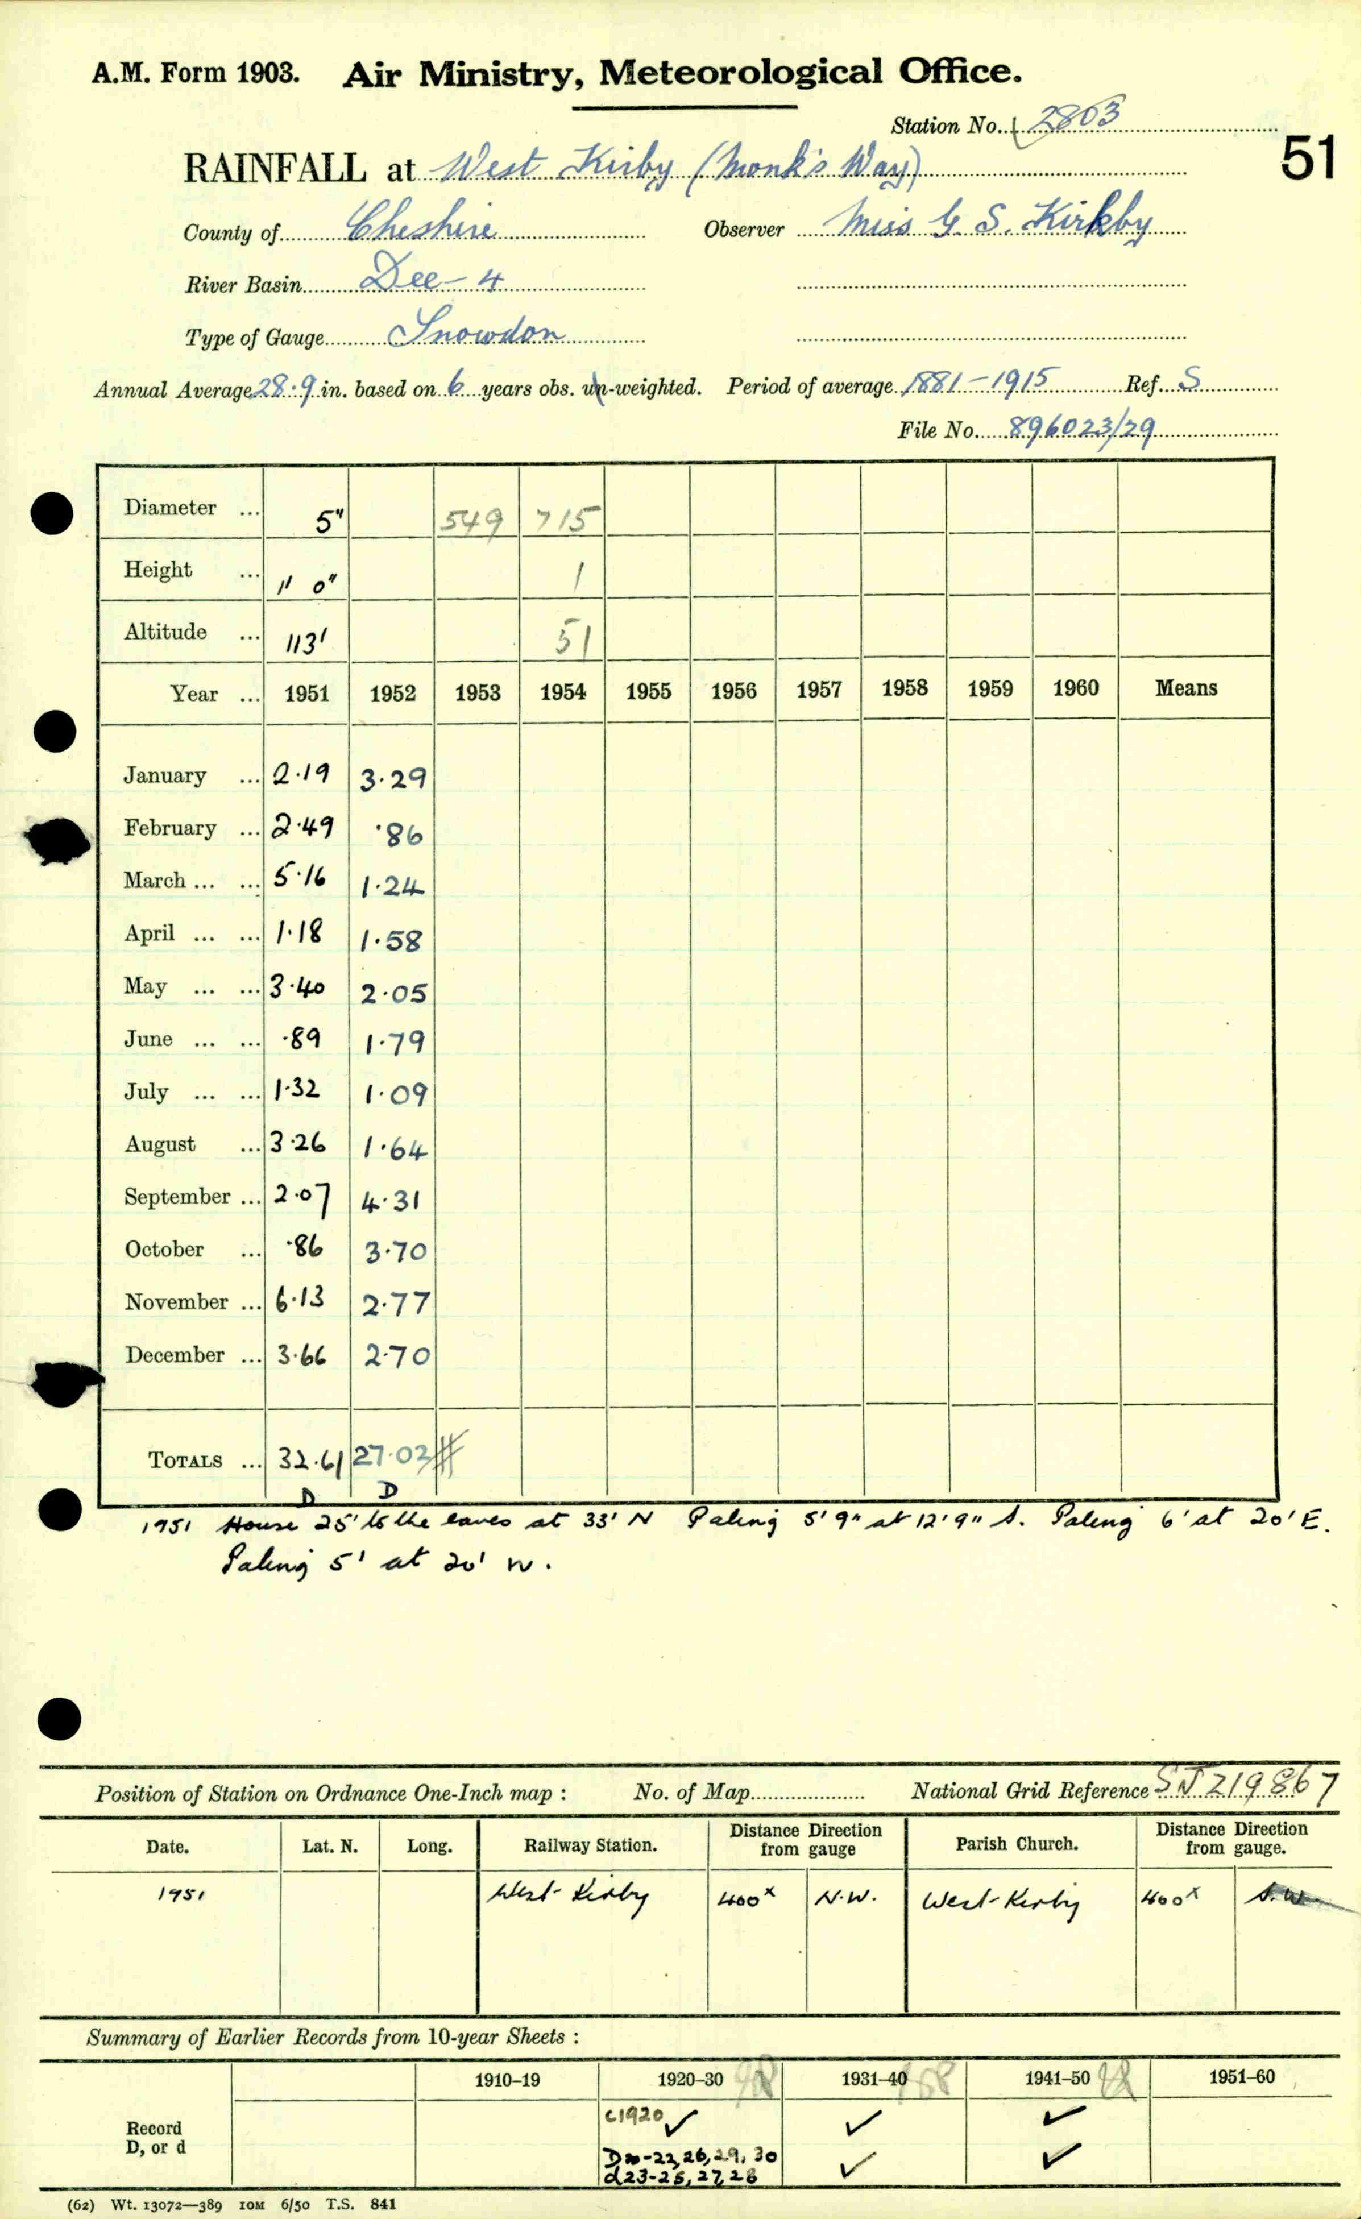 A.M. Form 1903. Air Ministry, Meteorological Office.
Station No. 2803
51
RAINFALL at West Kirby (Monk's Way)
County of Cheshire Observer Miss G. S. Kirkby
River Basin Dee - 4
Type of Gauge Snowdon
Annual Average 28.9 in. based on 6 years obs. un-weighted. Period of average 1881-1915 Ref. S
File No. 896023/29
Diameter ... 5" 549 715
Height ... 1' 0" 1
Altitude ... 113' 51
Year ... 1951 1952 1953 1954 1955 1956 1957 1958 1959 1960 Means
January ... 2.19 3.29
February ... 2.49 .86
March ... ... 5.16 1.24
April ... ... 1.18 1.58
May ... ... 3.40 2.05
June ... ... .89 1.79
July ... ... 1.32 1.09
August ... 3.26 1.64
September ... 2.07 4.31
October ... .86 3.70
November ... 6.13 2.77
December ... 3.66 2.70
TOTALS ... 32.61 27.02
D D
1951 House 25' to the eaves at 33' N Paling 5' 9" at 12' 9" S. Paling 6' at 20' E.
Paling 5' at 20' W.
Position of Station on Ordnance One-Inch map : No. of Map National Grid Reference SJ 219867
Date. Lat. N. Long. Railway Station. Distance from gauge Direction Parish Church. Distance from gauge. Direction
1951 West Kirby 400x N.W. West Kirby 400x S.W.
Summary of Earlier Records from 10-year Sheets :
1910-19 1920-30 1931-40 1941-50 1951-60
Record c1920 ✓ ✓ ✓
D, or d D20-22,26,29,30 ✓ ✓
d23-25,27,28
(62) Wt. 13072—389 10M 6/50 T.S. 841